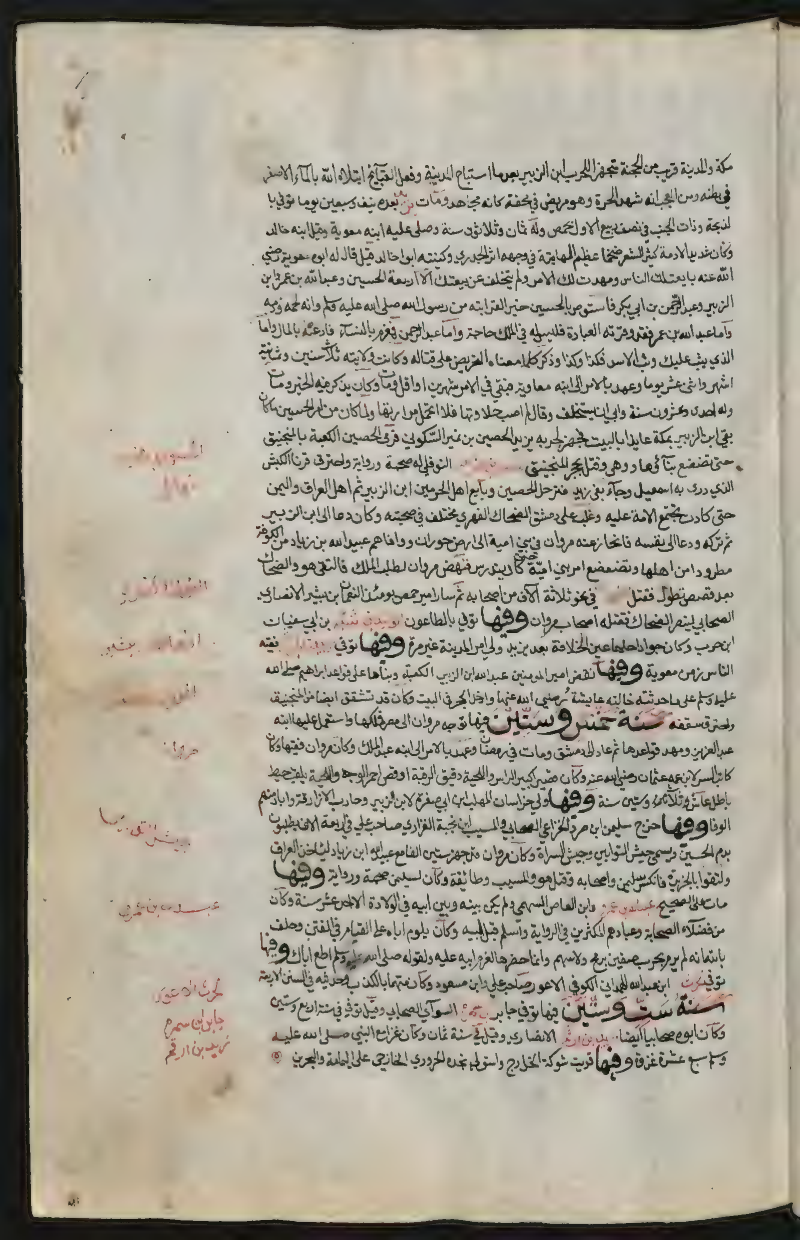 مكة والمدينة قريب من الجحفة متجهزا لحرب ابن الزبير بعد ما استباح المدينة وفعل القبائح ابتلاه الله بالماء الاصفر
في بطنه ومن العجب انه شهد الحرة وهو مريض في محفة كانه مجاهد ومات بعده نيف وسبعين يوما توفي با
لذبحة وذات الجنب في نصف ربيع الاول بحمص وله ثمان وثلاثون سنة وصلى عليه ابنه معوية وقيل ابنه خالد
وكان شديد الادمة كثير الشعر ضخما عظيم الهامة في وجهه اثر الجدري وكنيته ابو خالد قيل قال له ابوه معوية رضي
الله عنه بايعتك الناس ومهدت لك الامر ولم يتخلف عن بيعتك الا اربعة الحسين وعبد الله بن عمر وابن
الزبير وعبد الرحمن بن ابي بكر فاستوص بالحسين خير القرابته من رسول الله صلى الله عليه وسلم وانه لحمه ودمه
واما عبد الله بن عمر فقد وقرته العبادة فليس له في الملك حاجة واما عبد الرحمن فمغرم بالنساء فارعبه بالمال واما
الذي يثب عليك وثب الاسد فكذا وكذا وذكر كلاما معناه التحريض على قتاله وكانت ولايته ثلاث سنين وثمانية
اشهر واثنى عشر يوما وعهد بالامر الى ابنه معاوية فبقي في الامر شهرين او اقل ومات وكان يذكر فيه الخير ومات
وله احدى وعشرون سنة وابى ان يستخلف وقال لم اصب حلاوتها فلا اتحمل مرارتها ولما كان من امر الحسين ما كان
بقي ابن الزبير بمكة عايذا بالبيت فجهز لحربه يزيد الحصين بن نمير السكوني فرمى الحصين الكعبة بالمنجنيق
حتى تضعضع بناءها ووهى وقتل بحجر المنجنيق النوفلي له صحبة ورواية واحترق قرنا الكبش
الذي فدي به اسمعيل وجاء نعي يزيد فترحل الحصين وبايع اهل الحرمين ابن الزبير ثم اهل العراق واليمن
حتى كادت تجتمع الامة عليه وغلب على دمشق الضحاك الفهري مختلف في صحبته وكان دعا الى ابن الزبير
ثم تركه ودعا الى نفسه فانحاز عنه مروان في بني امية الى ارض حوران ووافاهم عبيد الله بن زياد من الكوفة
مطرودا من اهلها وتضعضع امر بني امية حتى كاد يندرس فنهض مروان لطلب الملك فالتقى هو والضحاك
بعد قصص تطول فقتل في نحو ثلاثة آلاف من اصحابه ثم سار امير حمص يومئذ النعمان بن بشير الانصاري
الصحابي لينصر الضحاك فقتله اصحاب مروان وفيها توفي بالطاعون الوليد بن عتبة بن ابي سفيان
ابن حرب وكان جوادا حليما عين للخلافة بعد يزيد ولي امر المدينة غير مرة وفيها توفي فقيه
الناس زمن معوية وفيها نقض امير المومنين عبد الله بن الزبير الكعبة وبناها على قواعد ابراهيم صلى الله
عليه وسلم على ما حدثته خالته عايشة رضي الله عنها وادخل الحجر في البيت وكان قد تشقق ايضا من المنجنيق
واحترق سقفه سنة خمس وستين فيها توجه مروان الى مصر فملكها واستعمل عليها ابنه
عبد العزيز ومهد قواعدها ثم عاد الى دمشق ومات في رمضان وعهد بالامر الى ابنه عبد الملك وكان مروان فقيها وكان
كاتب السر لابن عمه عثمان رضي الله عنه وكان قصير كبير الراس واللحية دقيق الرقبة اوقص احمر الوجه واللحية يلقب خيط
باطل عاش ثلاثة وستين سنة وفيها ولي خراسان المهلب ابن ابي صفرة لابن الزبير وحارب الازارقة واباد منهم
الوفا وفيها خرج سليمن ابن صرد الخزاعي الصحابي والمسيب ابن نجبة الفزاري صاحب علي في اربعة الاف يطلبون
بدم الحسين وسمي جيش التوابين وجيش السراة وكان مروان قد جهز ستين الفا مع عبيد الله ابن زياد لياخذ العراق
والتقوا بالجزيرة فانكسر سليمن واصحابه وقتل هو والمسيب وطائفة وكان لسليمن صحبة ورواية وفيها
مات على الصحيح عبد الله بن عمرو وابن العاص السهمي ولم يكن بينه وبين ابيه في الولادة الا احدى عشر سنة وكان
من فضلاء الصحابة وعبادهم المكثرين في الرواية واسلم قبل ابيه وكان يلوم اباه على القيام في الفتن وحلف
بالله انه لم يرم بحرب صفين برمح ولا سهم وانما حضرها لعزم ابيه عليه ولقوله صلى الله عليه وسلم اطع اباك وفيها
توفي الحرث ابن عبد الله الهمداني الكوفي الاعور صاحب علي وابن مسعود وكان متهما بالكذب وحديثه في السنن الاربعة
سنة ست وستين فيها توفي جابر بن سمرة السوائي الصحابي وقيل توفي في سنة اربع وستين
وكان ابوه صحابيا ايضا زيد بن ارقم الانصاري وقيل في سنة ثمان وكان غزا مع النبي صلى الله عليه
وسلم سبع عشرة غزوة وفيها قويت شوكة الخوارج واستولى نجدة الحروري الخارجي على اليمامة والبحرين
مروان
جيش التوابين
عبد الله بن عمرو
الحرث الاعور
جابر ابن سمره
زيد بن ارقم